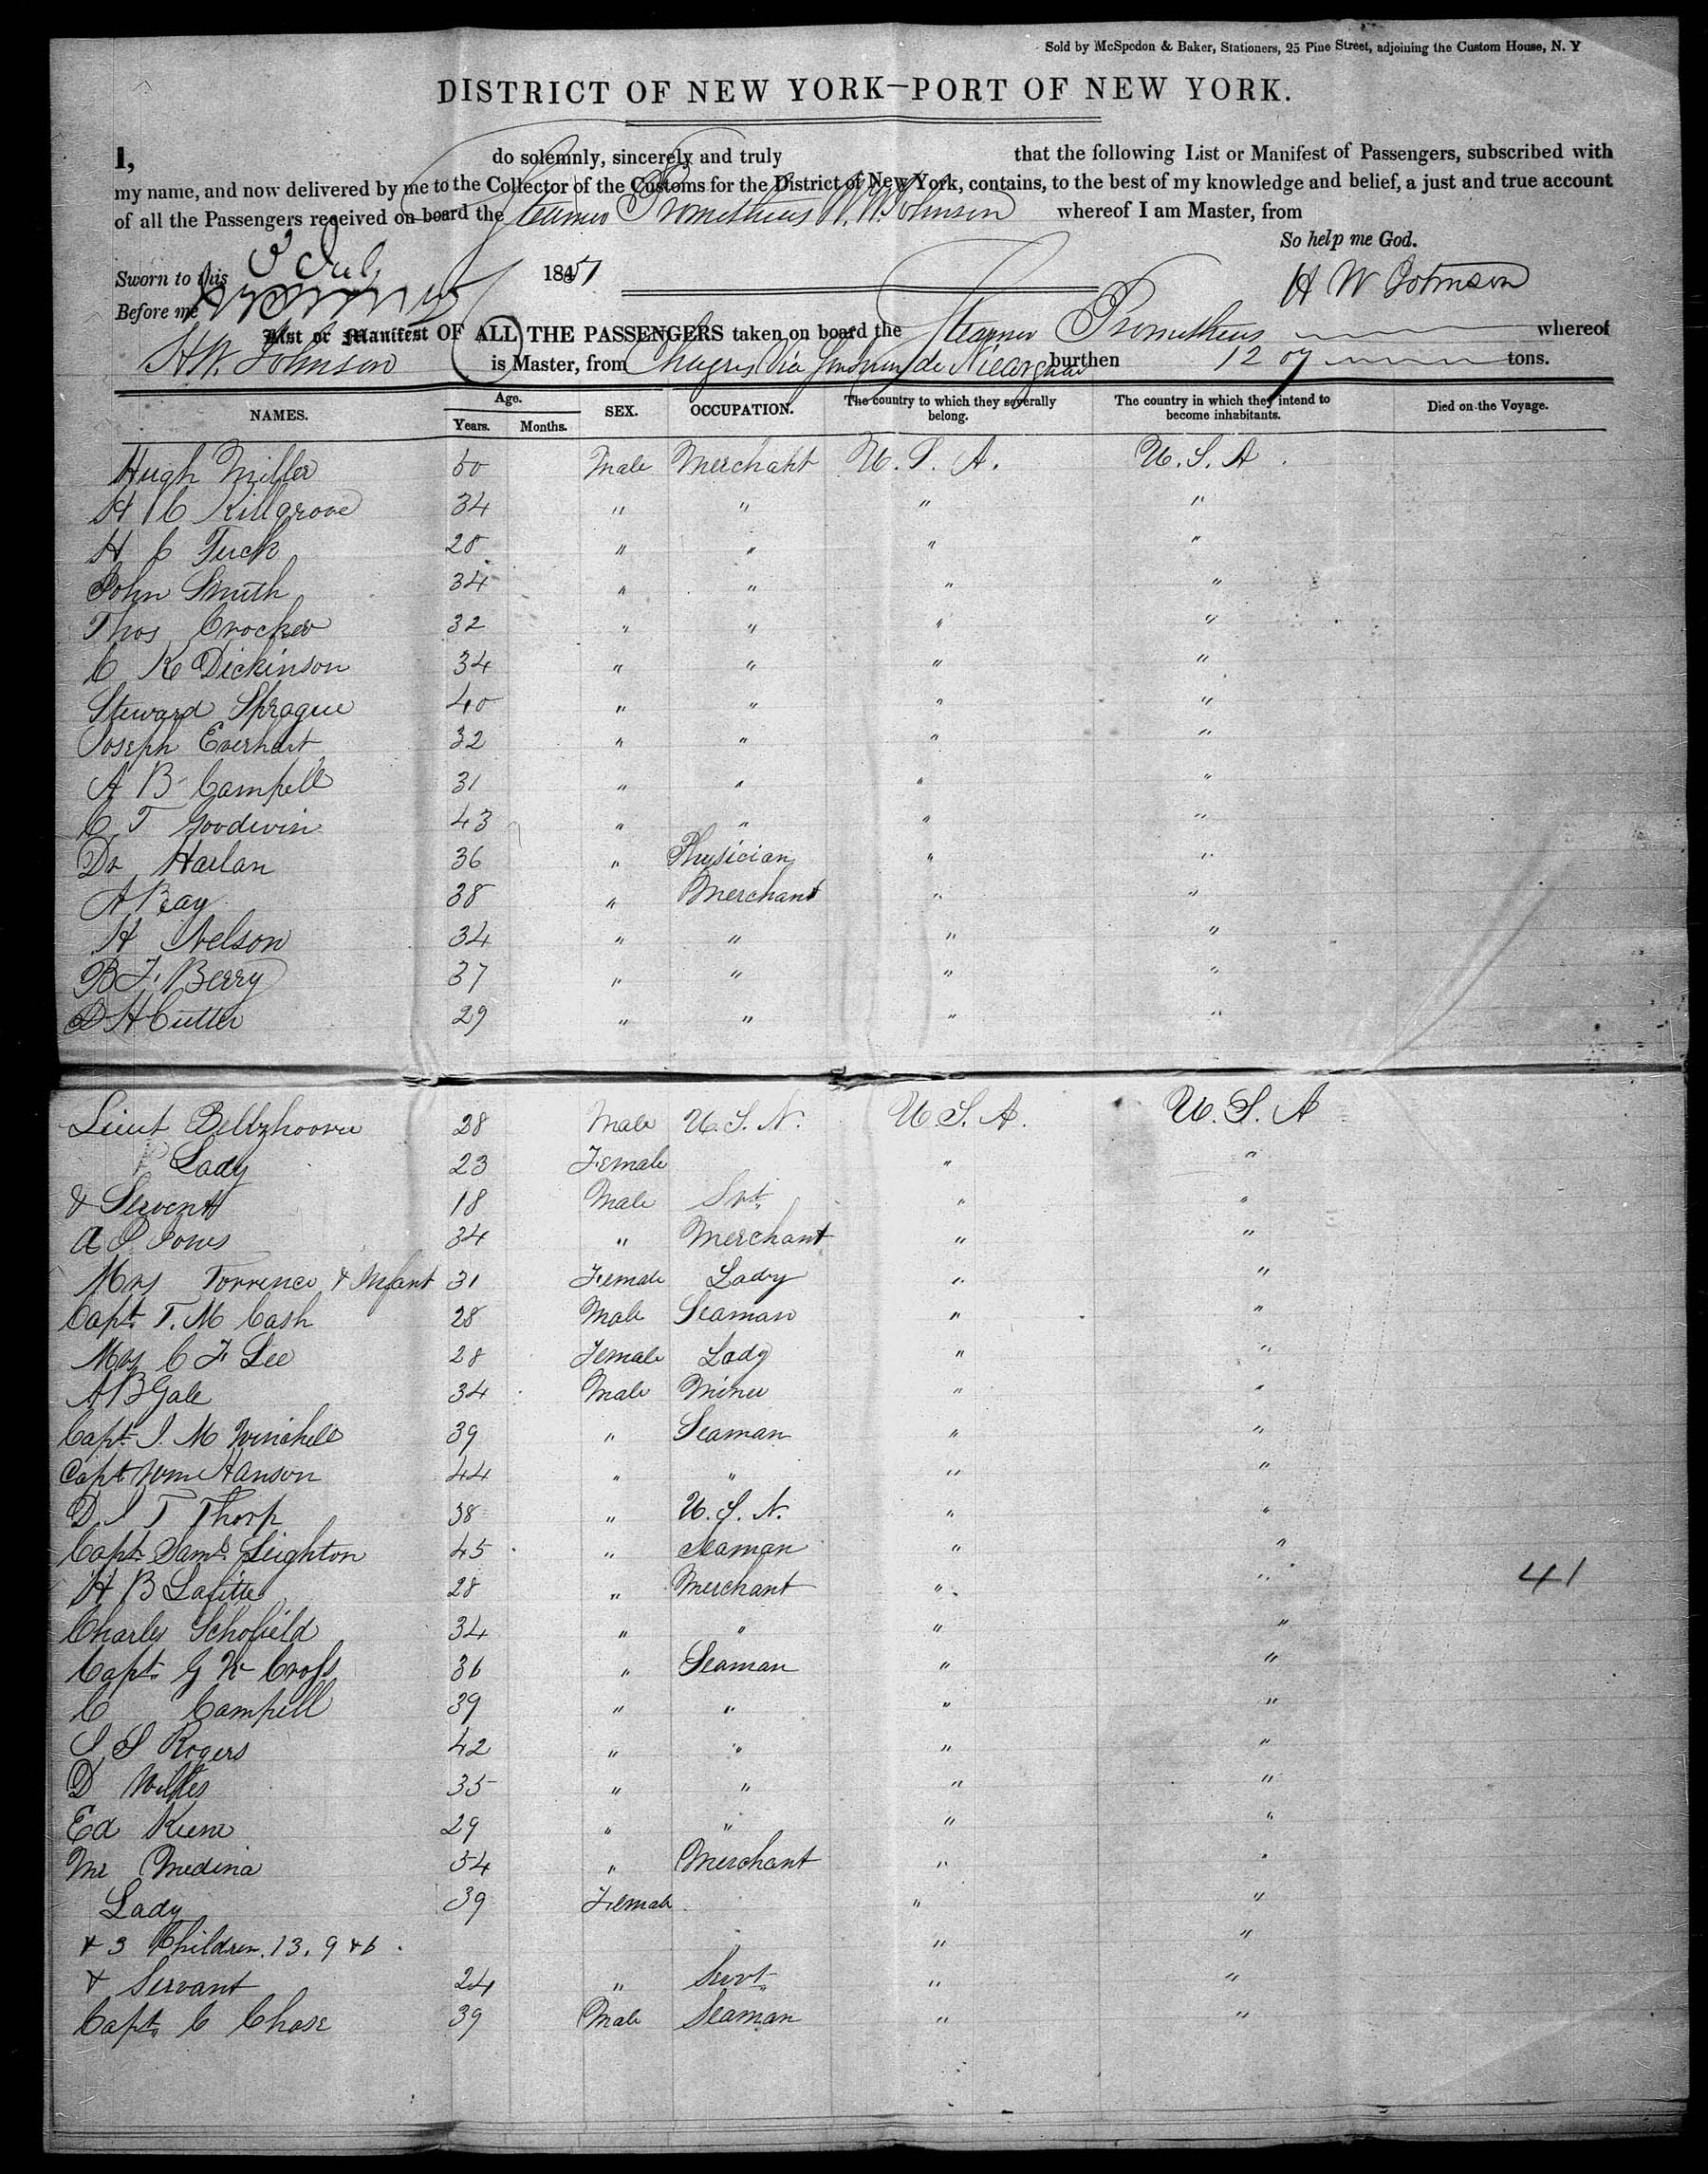 Sold by McSpedon & Baker, Stationers, 25 Pine Street, adjoining the Custom House, N. Y
DISTRICT OF NEW YORK—PORT OF NEW YORK.
I, do solemnly, sincerely and truly that the following List or Manifest of Passengers, subscribed with
my name, and now delivered by me to the Collector of the Customs for the District of New York, contains, to the best of my knowledge and belief, a just and true account
of all the Passengers received on board the Steamer Prometheus H. W. Johnson whereof I am Master, from
So help me God.
Sworn to this 3 July 1851
H W Johnson
Before me
List or Manifest OF ALL THE PASSENGERS taken on board the Steamer Prometheus whereof
H W. Johnson is Master, from Chagres Via San Juan de Nicaragua burthen 1207 tons.
NAMES. Age. Years. Months. SEX. OCCUPATION. The country to which they severally belong. The country in which they intend to become inhabitants. Died on the Voyage.
Hugh Miller 50 Male Merchant U. S. A. U. S. A.
H C Killgrove 34 " " " "
H C Tuck 28 " " " "
John Smith 34 " " " "
Thos Crocker 32 " " " "
C K Dickinson 34 " " " "
Steward Sprague 40 " " " "
Joseph Everhart 32 " " " "
A B Campell 31 " " " "
C T Goodwin 43 " " " "
Dr Harlan 36 " Physician " "
A Ray 38 " Merchant " "
H Nelson 34 " " " "
B F. Berry 37 " " " "
D H Cutter 29 " " " "
Lieut Beltzhoover 28 Male U. S. N. U. S. A. U. S. A
Lady 23 Female " "
& Servent 18 Male Svt " "
A S Jones 34 " Merchant " "
Mrs Torrence & Infant 31 Female Lady " "
Capt. T. M Cash 28 Male Seaman " "
Mrs C F Lee 28 Female Lady " "
A B Gale 34 Male Miner " "
Capt. J. M Winchell 39 " Seaman " "
Capt. Wm Hanson 44 " " " "
D. S T Thorp 38 " U. S. N. " "
Capt. Saml. Leighton 45 " Seaman " "
H B Lafitte 28 " Merchant " " 41
Charles Schofield 34 " " " "
Capt. G W Cross 36 " Seaman " "
C Campell 39 " " " "
S S Rogers 42 " " " "
D Wilkes 35 " " " "
Ed Keene 29 " " " "
Mr Medina 54 " Merchant " "
Lady 39 Female " "
& 3 Children. 13, 9 & 6. " "
& Servant 24 " Servt " "
Capt. C Chase 39 Male Seaman " "